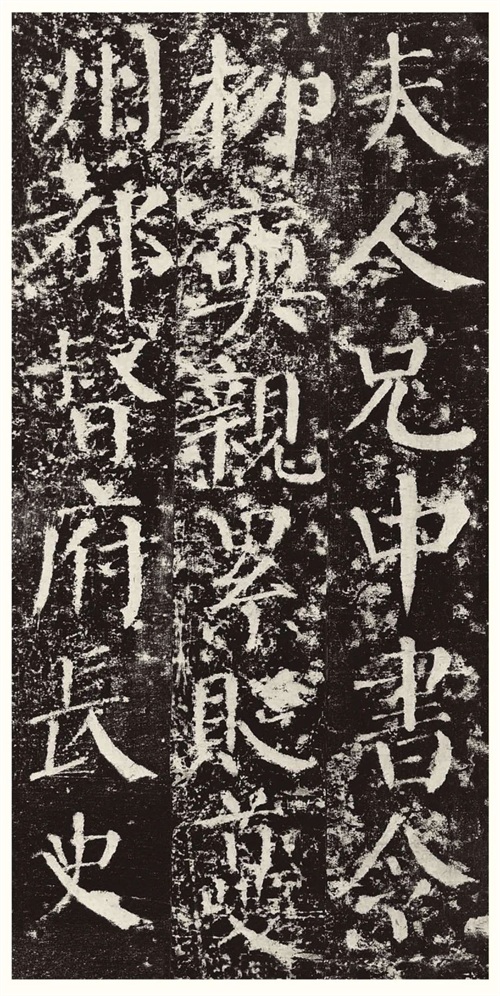 夫人兄中書令
柳奭親累貶夔
州都督府長史